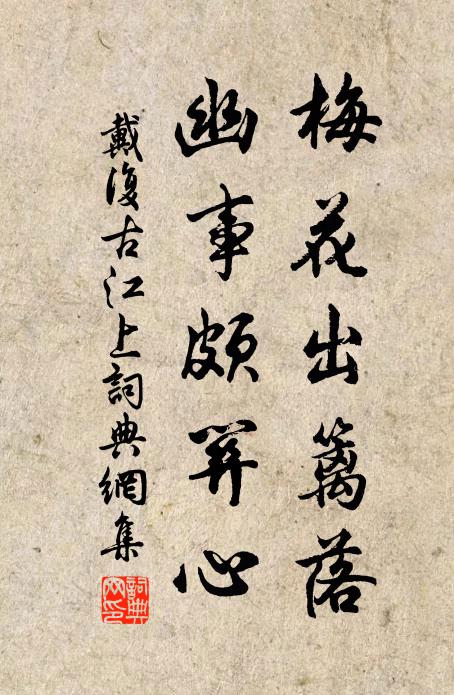 梅花出籬落
幽事頗關心
戴復古江上詞典網集
詞典網印